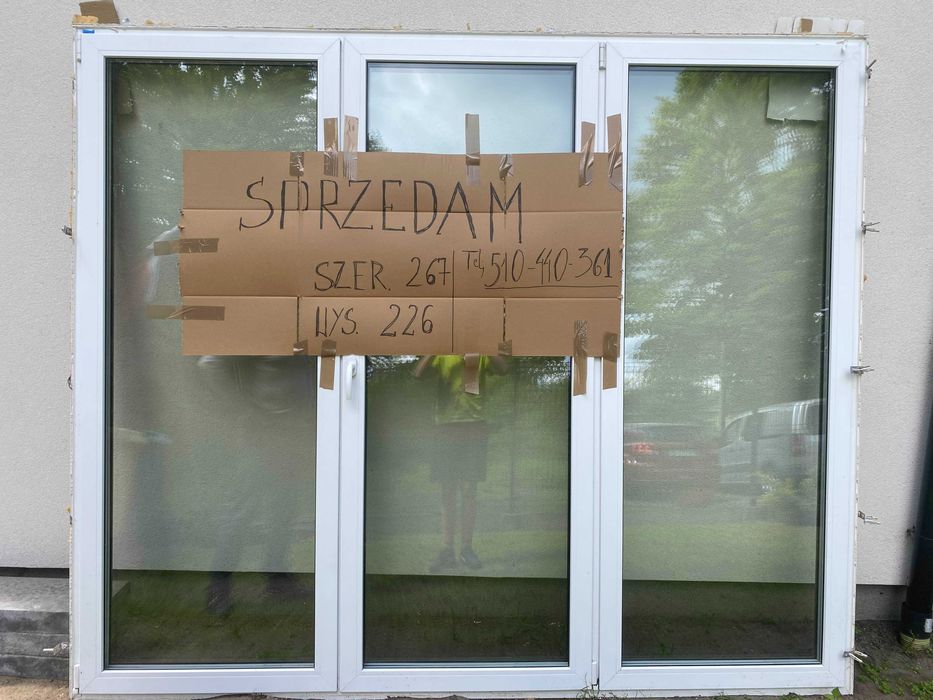 SPRZEDAM
SZER. 267
Tel, 510-410-361
WYS. 226